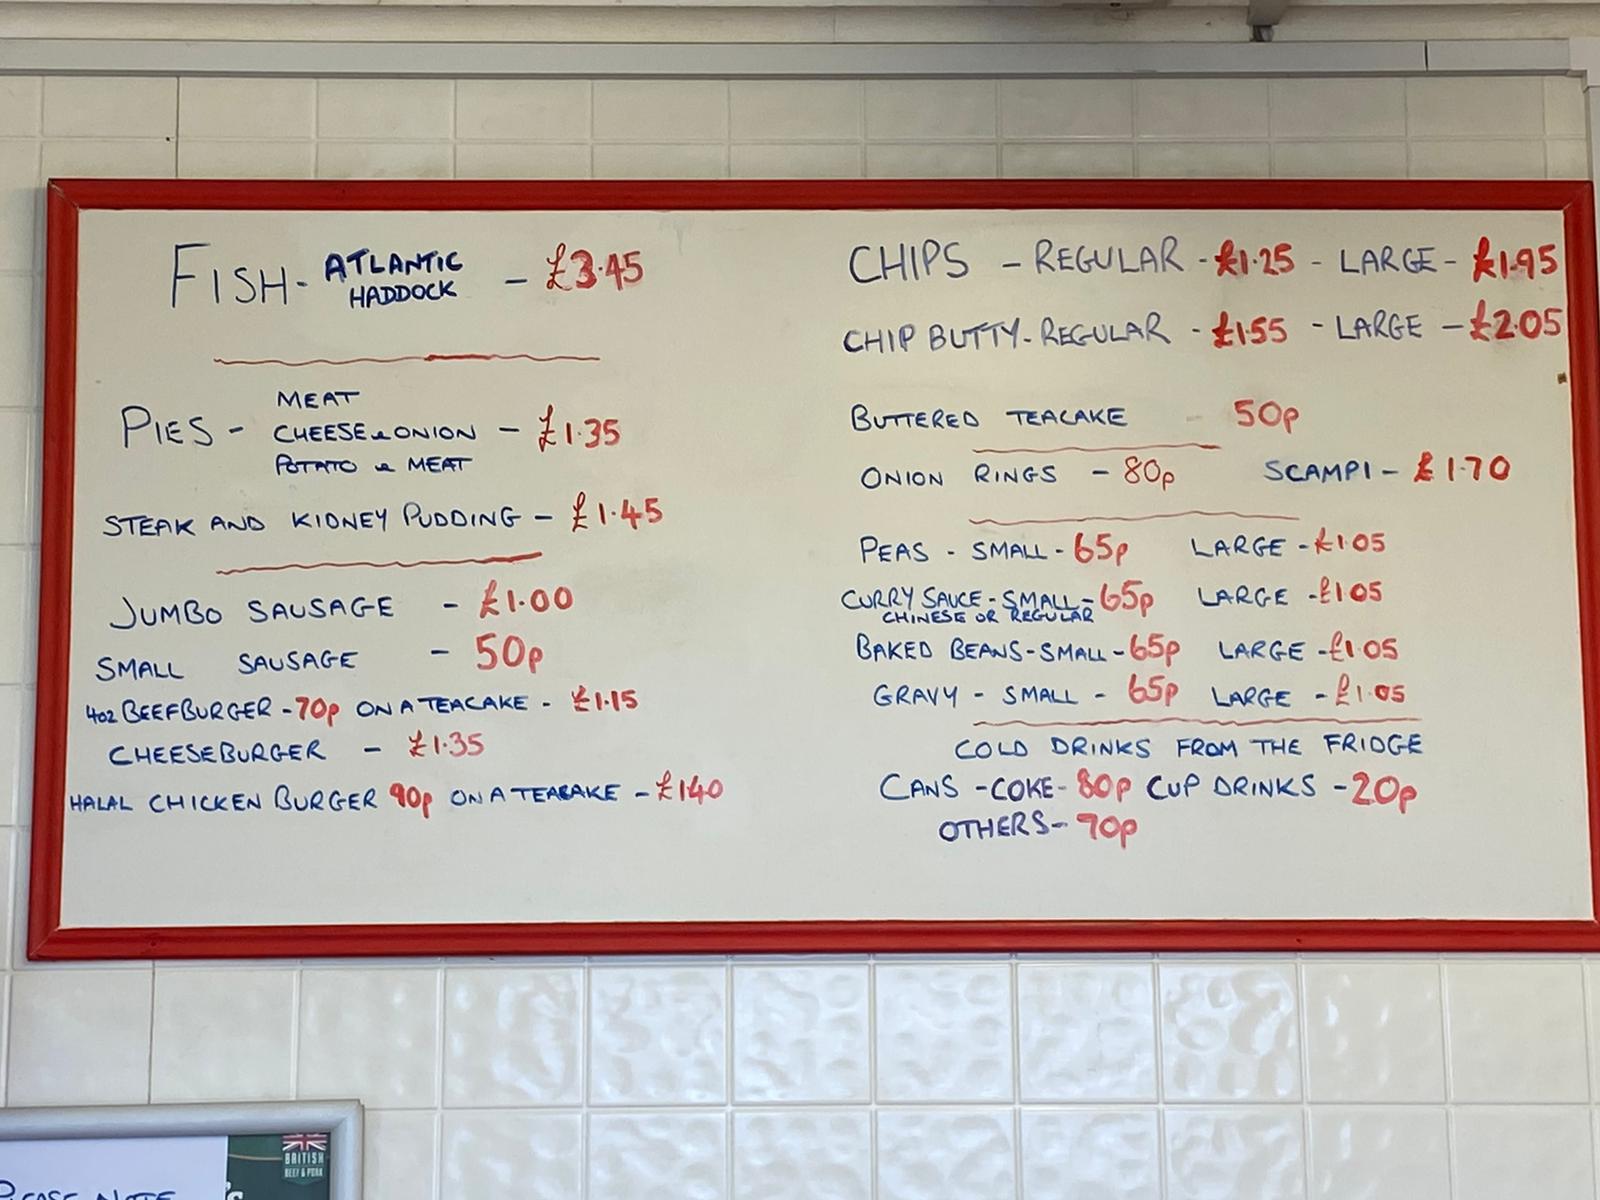 FISH - ATLANTIC HADDOCK - £3.45
PIES - MEAT
CHEESE & ONION - £1.35
POTATO & MEAT
STEAK AND KIDNEY PUDDING - £1.45
JUMBO SAUSAGE - £1.00
SMALL SAUSAGE - 50p
4oz BEEFBURGER - 70p ON A TEACAKE - £1.15
CHEESEBURGER - £1.35
HALAL CHICKEN BURGER 90p ON A TEACAKE - £1.40
CHIPS - REGULAR - £1.25 - LARGE - £1.95
CHIP BUTTY - REGULAR - £1.55 - LARGE - £2.05
BUTTERED TEACAKE - 50p
ONION RINGS - 80p SCAMPI - £1.70
PEAS - SMALL - 65p LARGE - £1.05
CURRY SAUCE - SMALL - 65p LARGE - £1.05
CHINESE OR REGULAR
BAKED BEANS - SMALL - 65p LARGE - £1.05
GRAVY - SMALL - 65p LARGE - £1.05
COLD DRINKS FROM THE FRIDGE
CANS - COKE - 80p CUP DRINKS - 20p
OTHERS - 70p
BRITISH
BEEF & PORK
PLEASE NOTE